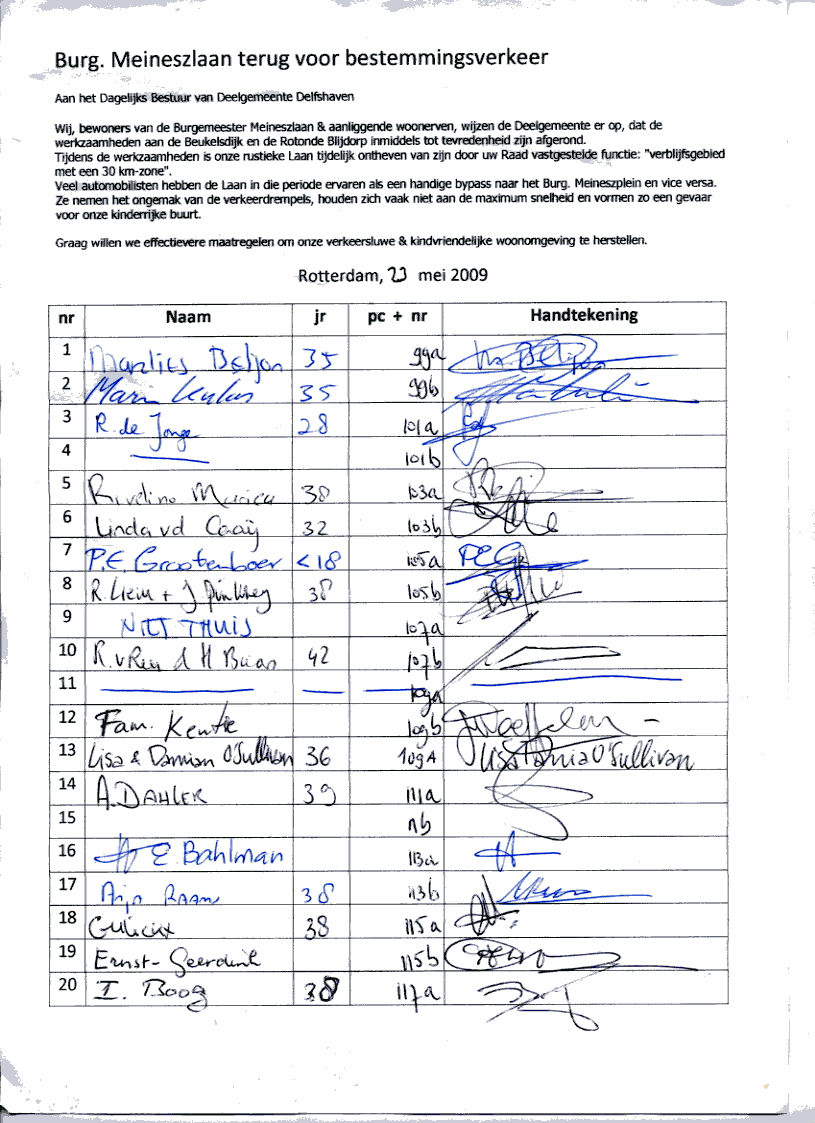 Burg. Meineszlaan terug voor bestemmingsverkeer
Aan het Dagelijks Bestuur van Deelgemeente Delfshaven
Wij, bewoners van de Burgemeester Meineszlaan & aanliggende woonerven, wijzen de Deelgemeente er op, dat de
werkzaamheden aan de Beukelsdijk en de Rotonde Blijdorp inmiddels tot tevredenheid zijn afgerond.
Tijdens de werkzaamheden is onze rustieke Laan tijdelijk ontheven van zijn door uw Raad vastgestelde functie: "verblijfsgebied
met een 30 km-zone".
Veel automobilisten hebben de Laan in die periode ervaren als een handige bypass naar het Burg. Meineszplein en vice versa.
Ze nemen het ongemak van de verkeerdrempels, houden zich vaak niet aan de maximum snelheid en vormen zo een gevaar
voor onze kinderrijke buurt.
Graag willen we effectievere maatregelen om onze verkeersluwe & kindvriendelijke woonomgeving te herstellen.
Rotterdam, 23 mei 2009
nr Naam jr pc + nr Handtekening
1 Marlies Beljon 35 99a
2 35 99b
3 R. de Jonge 28 101a
4 101b
5 Rivelino 38 103a
6 Linda vd 32 103b
7 P.E. Grootenboer <18 105a PEG
8 R. + J 38 105b
9 NIET THUIS 107a
10 42 107b
11 109a
12 Fam. Kentie 109b
13 Lisa & Damian O'Sullivan 36 109A Lisa O'Sullivan
14 A. DAHLER 39 111a
15 11b
16 E. Bahlman 113a
17 RAAM 38 113b
18 38 115a
19 Ernst-Geerdink 115b
20 I. Boog 38 117a